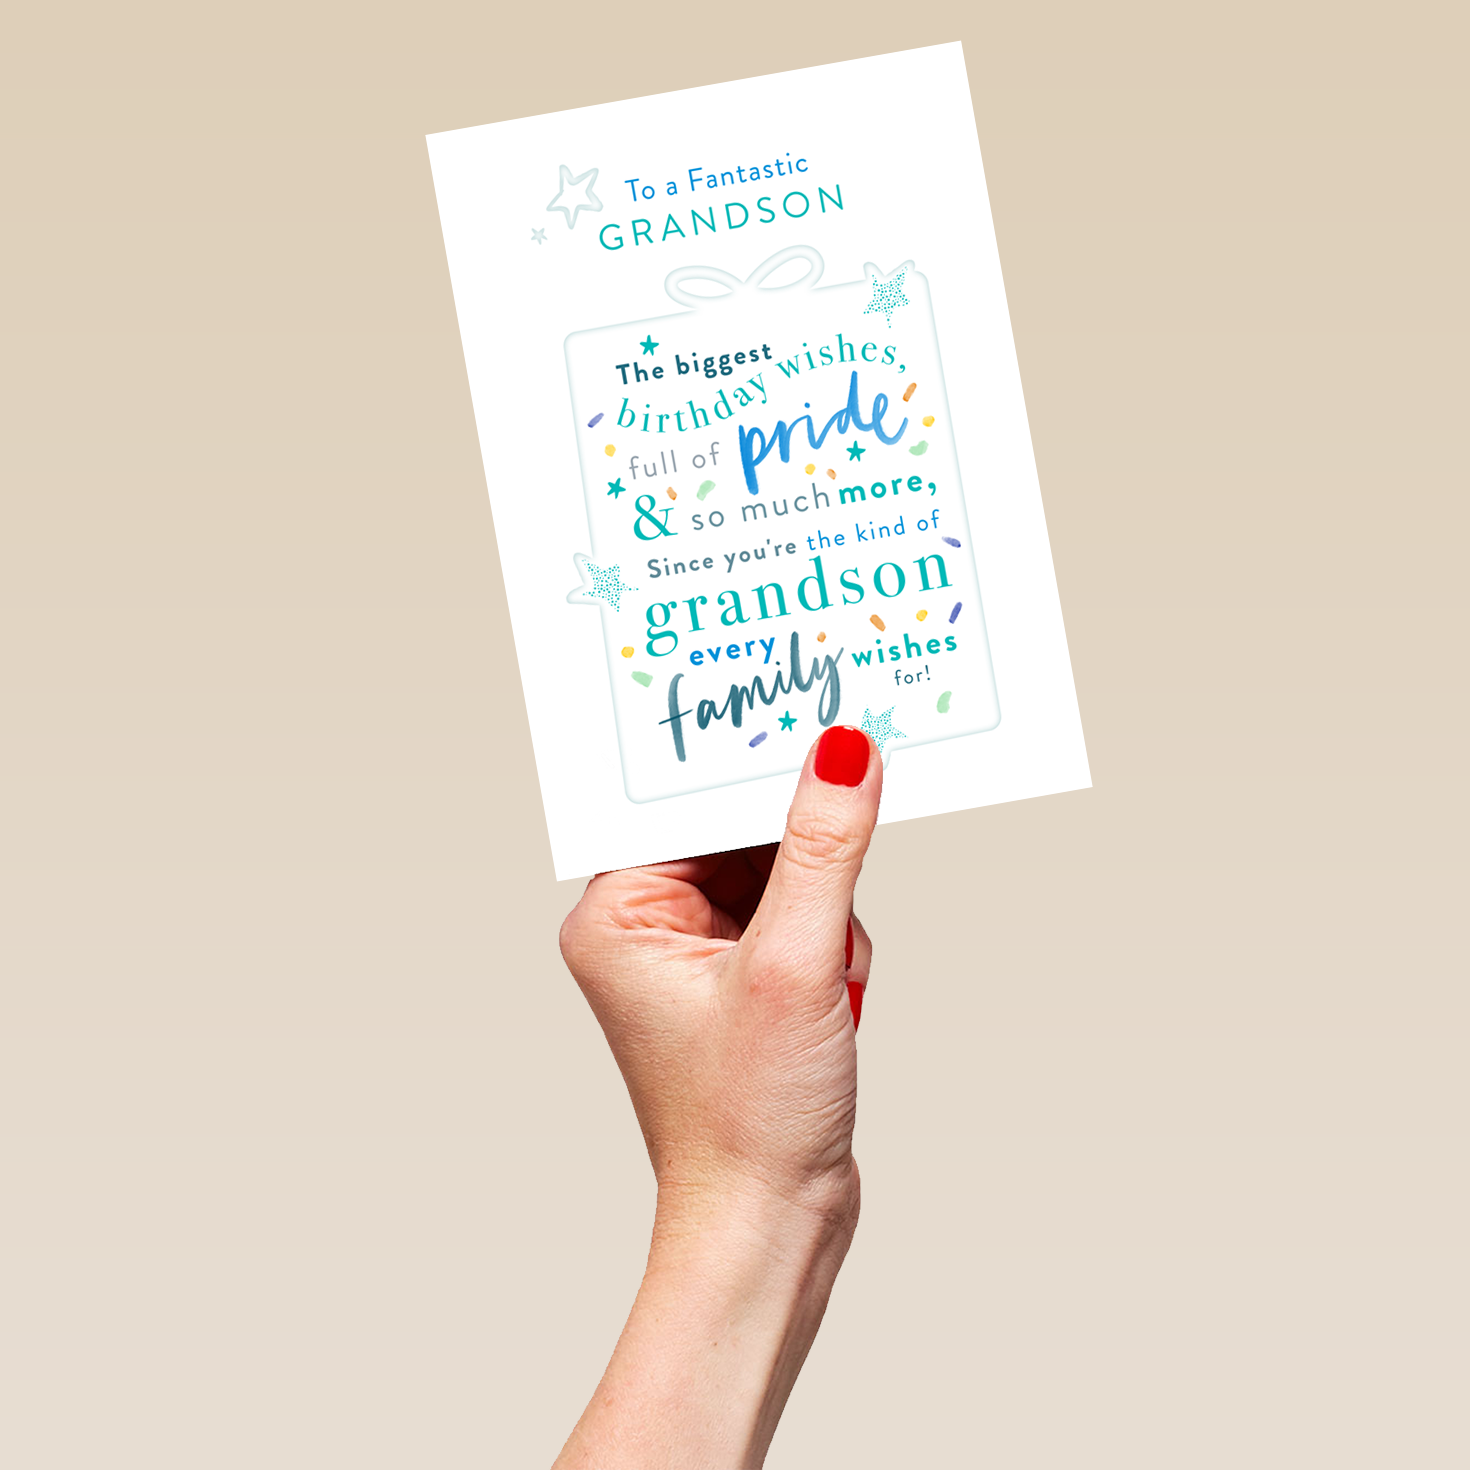 To a Fantastic
GRANDSON
The biggest
birthday wishes,
full of pride
& so much more,
Since you're the kind of
grandson
every
family wishes
for!